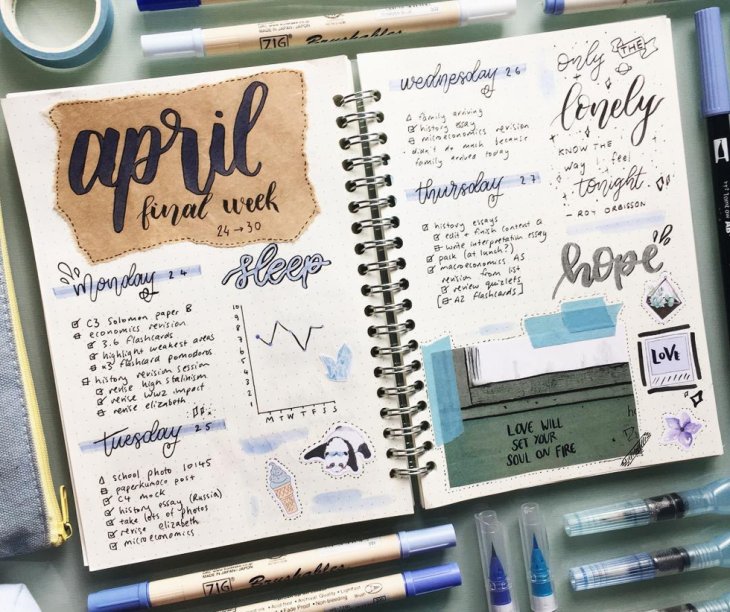 april
final week
24 → 30
monday 24
C3 Solomon paper B
economics revision
3.6 flashcards
highlight weakest areas
x3 flashcard pomodoros
history revision session
revise high stalinism
revise WW2 impact
revise elizabeth
tuesday 25
school photo 10:45
paperkumaco post
C4 mock
history essay (Russia)
take lots of photos
revise elizabeth
microeconomics
sleep
10
9
8
7
6
5
4
3
2
1
M T W T F S S
wednesday 26
family arriving
history essay
microeconomics revision
didn't do much because
family arrived today
thursday 27
history essays
edit + finish content Q
write interpretation essay
pack (at lunch?)
macroeconomics AS
revision from list
review quizlets
[A2 flashcards]
only THE
lonely
KNOW THE
way I feel
tonight
- ROY ORBISON
hope
LOVE
LOVE WILL
SET YOUR
SOUL ON FIRE
ZIG Brushables
MADE IN JAPAN
ZIG Brushables
MADE IN JAPAN
Acid Free • Non-bleeding